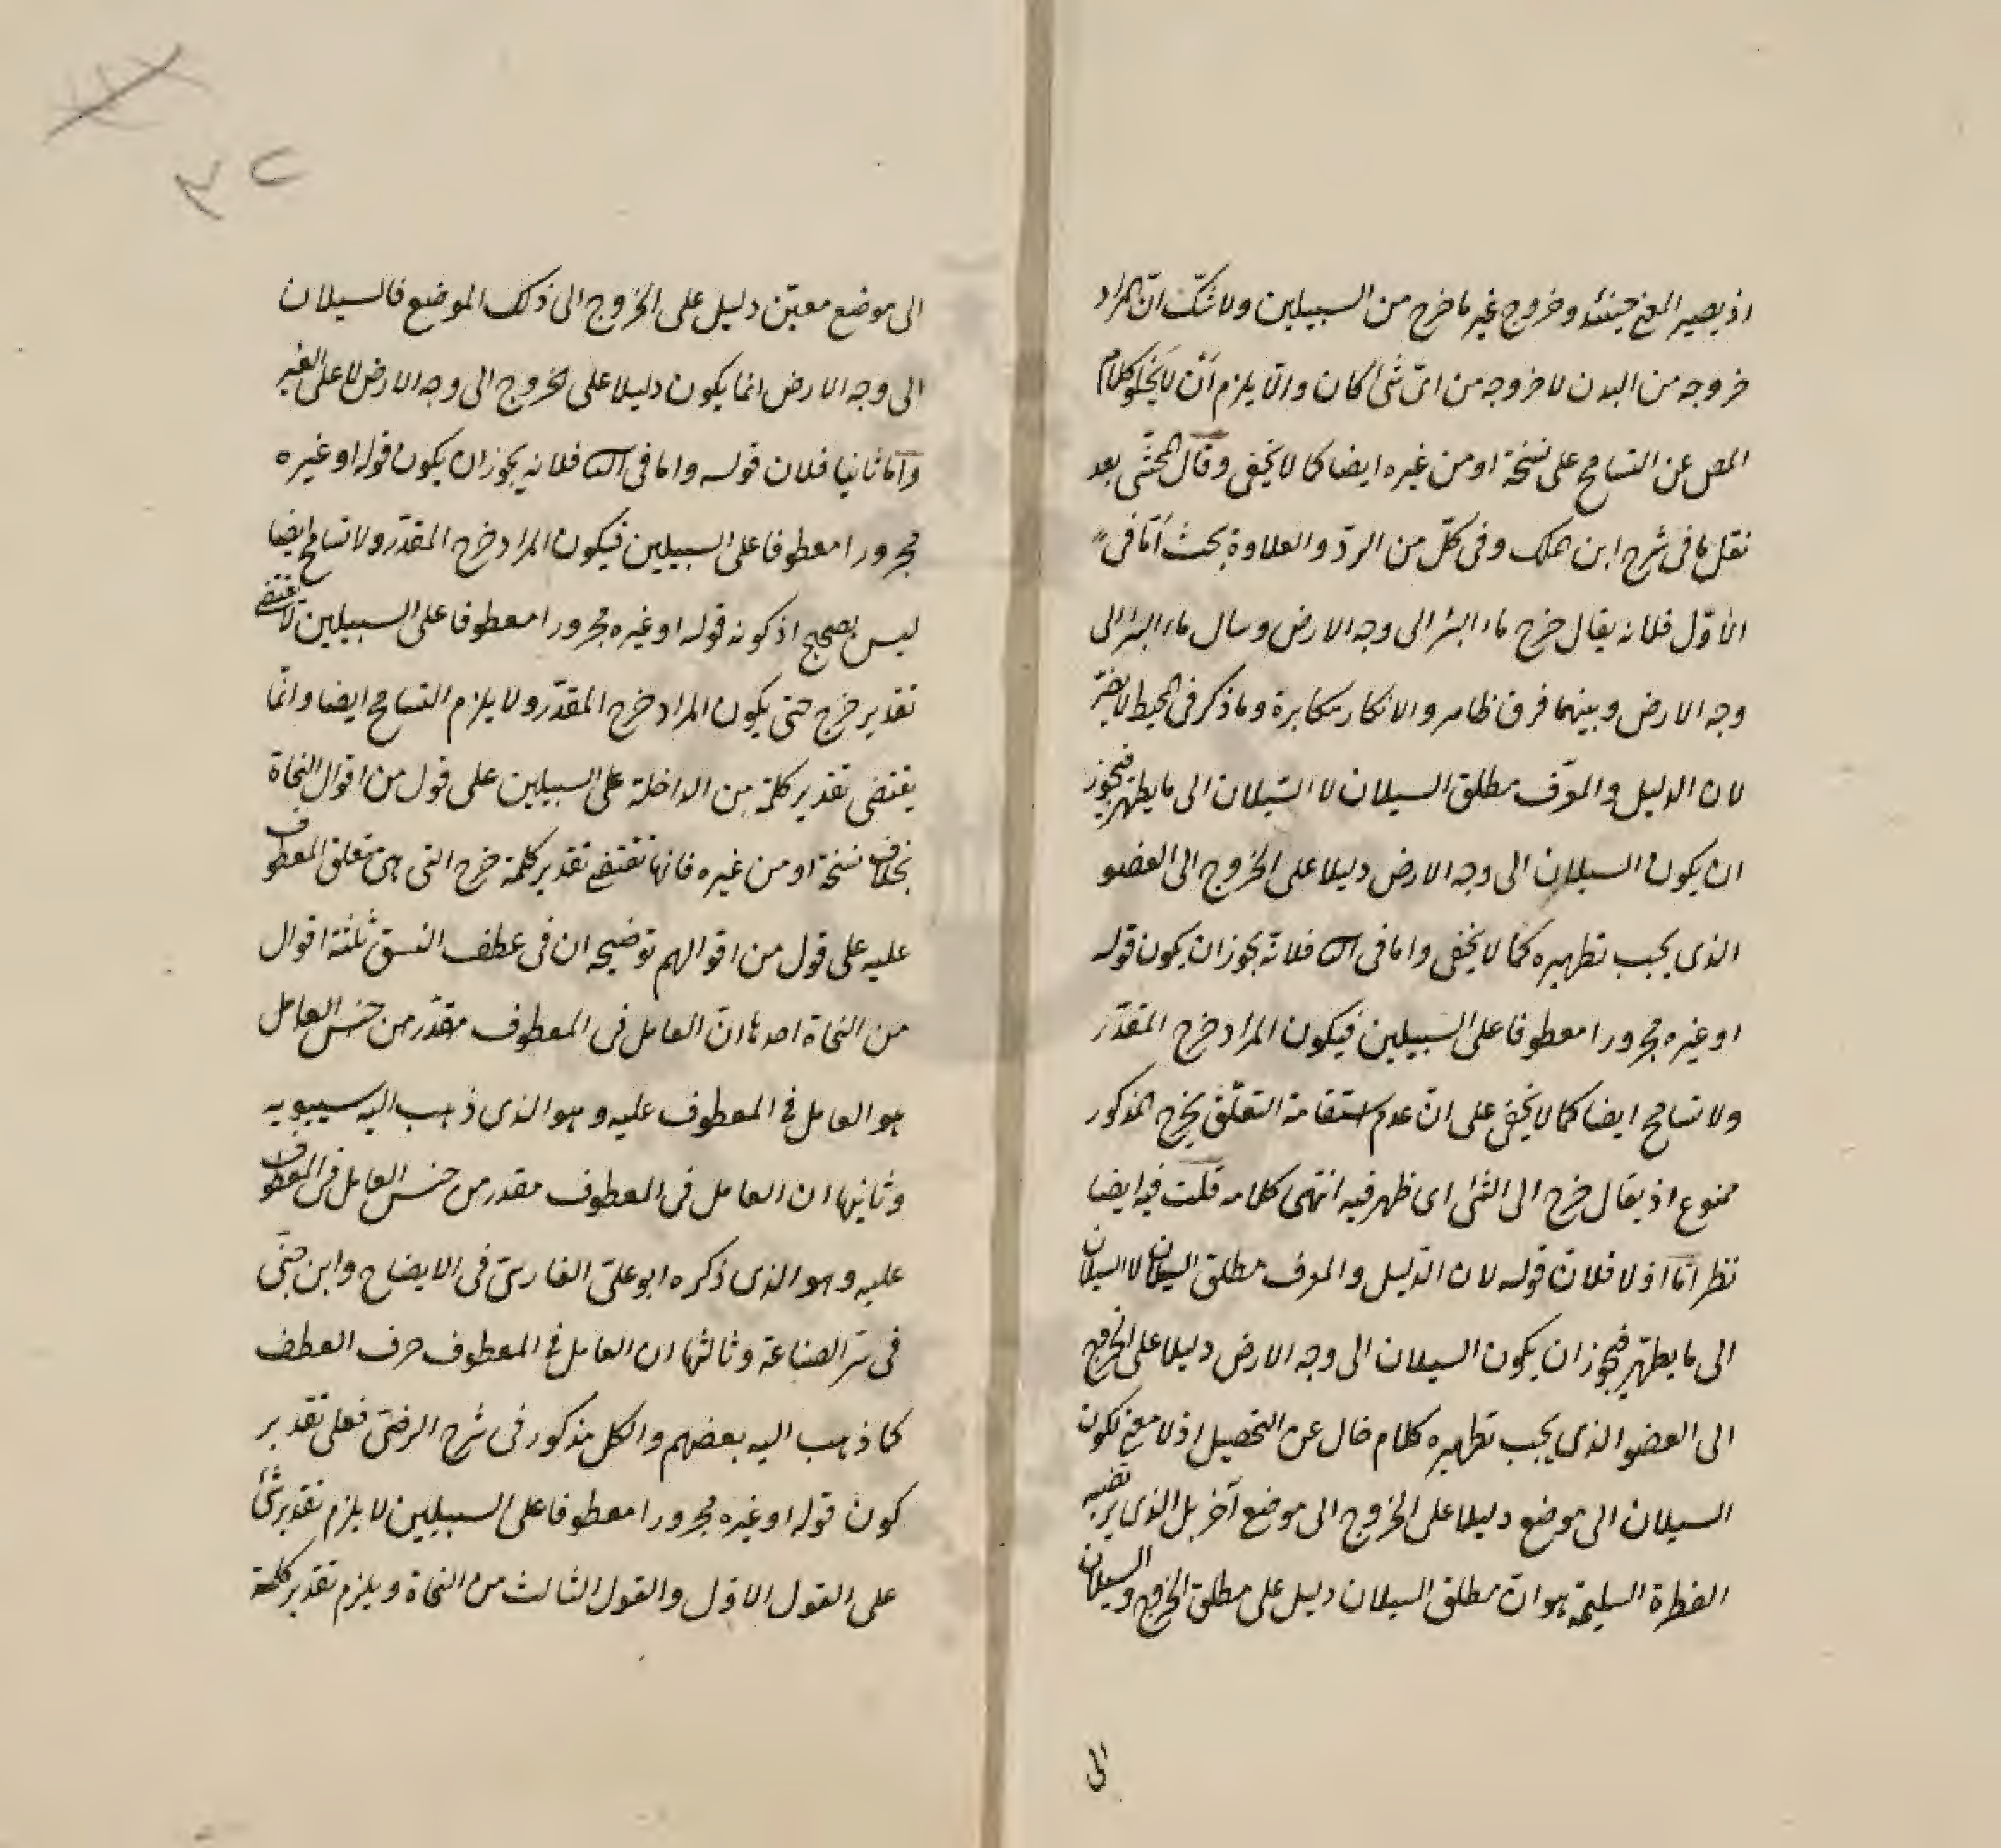 اذ يصير المعنى حينئذ وخروج غير ما خرج من السبيلين ولا شكّ انّ المراد
خروجه من البدن لا خروجه من اىّ شئ كان والّا يلزم ان لا يخلو كلام
المص عن التسامح على نسخة او من غيره ايضا كما لا يخفى وقال المحشّى بعد
نقل ما فى شرح ابن الملك وفى كلّ من الردّ والعلاوة بحث أمّا فى
الأوّل فلانه يقال خرج ماء البئر الى وجه الارض وسال ماء البئر الى
وجه الارض وبينهما فرق ظاهر والانكار مكابرة وما ذكر فى المحيط لا يضرّ
لان الدليل والمعرّف مطلق السيلان لا السّيلان الى ما يطهر فيجوز
ان يكون السيلان الى وجه الارض دليلا على الخروج الى العضو
الذى يجب تطهيره كما لا يخفى واما فى الث فلانّه يجوز ان يكون قوله
او غيره مجرورا معطوفا على السبيلين فيكون المراد خرج المقدّر
ولا تسامح ايضا كما لا يخفى على انّ عدم استقامة التعلّق بخرج المذكور
ممنوع اذ يقال خرج الى الشئ اى ظهر فيه انتهى كلامه قلت فيه ايضا
نظر امّا اولا فلانّ قوله لان الدّليل والمعرف مطلق السيلان لا السيلان
الى ما يطهّر فيجوز ان يكون السيلان الى وجه الارض دليلا على الخروج
الى العضو الذى يجب تطهيره كلام خال عن التحصيل اذ لا معنى لكون
السيلان الى موضع دليلا على الخروج الى موضع آخر بل الذى يرتضيه
الفطرة السليمة هو انّ مطلق السيلان دليل على مطلق الخروج والسيلان
الى
٢٥
الى موضع معيّن دليل على الخروج الى ذلك الموضع فالسيلان
الى وجه الارض انما يكون دليلا على الخروج الى وجه الارض لا على الغير
وامّا ثانيا فلان قوله واما فى الث فلانه يجوز ان يكون قوله او غيره
مجرورا معطوفا على السبيلين فيكون المراد خرج المقدّر ولا تسامح ايضا
ليس بصحيح اذ كونه قوله او غيره مجرورا معطوفا على السبيلين لا يقتضى
تقدير خرج حتى يكون المراد خرج المقدّر ولا يلزم التسامح ايضا وانّما
يقتضى تقدير كلمة من الداخلة على السبيلين على قول من اقوال النحاة
بخلاف نسخة او من غيره فانها تقتضى تقدير كلمة خرج التى هى متعلق المعطوف
عليه على قول من اقوالهم توضيحه ان فى عطف النسق ثلثة اقوال
من النحاة احدها انّ العامل فى المعطوف مقدّر من جنس العامل
هو العامل فى المعطوف عليه وهو الذى ذهب اليه سيبويه
وثانيها ان العامل فى المعطوف مقدر من جنس العامل فى المعطوف
عليه وهو الذى ذكره ابو علىّ الفارسىّ فى الايضاح وابن جنّى
فى سرّ الصناعة وثالثها ان العامل فى المعطوف حرف العطف
كما ذهب اليه بعضهم والكل مذكور فى شرح الرضىّ فعلى تقدير
كون قوله او غيره مجرورا معطوفا على السبيلين لا يلزم تقدير شئ
على القول الاوّل والقول الثالث من النحاة ويلزم تقدير كلمة